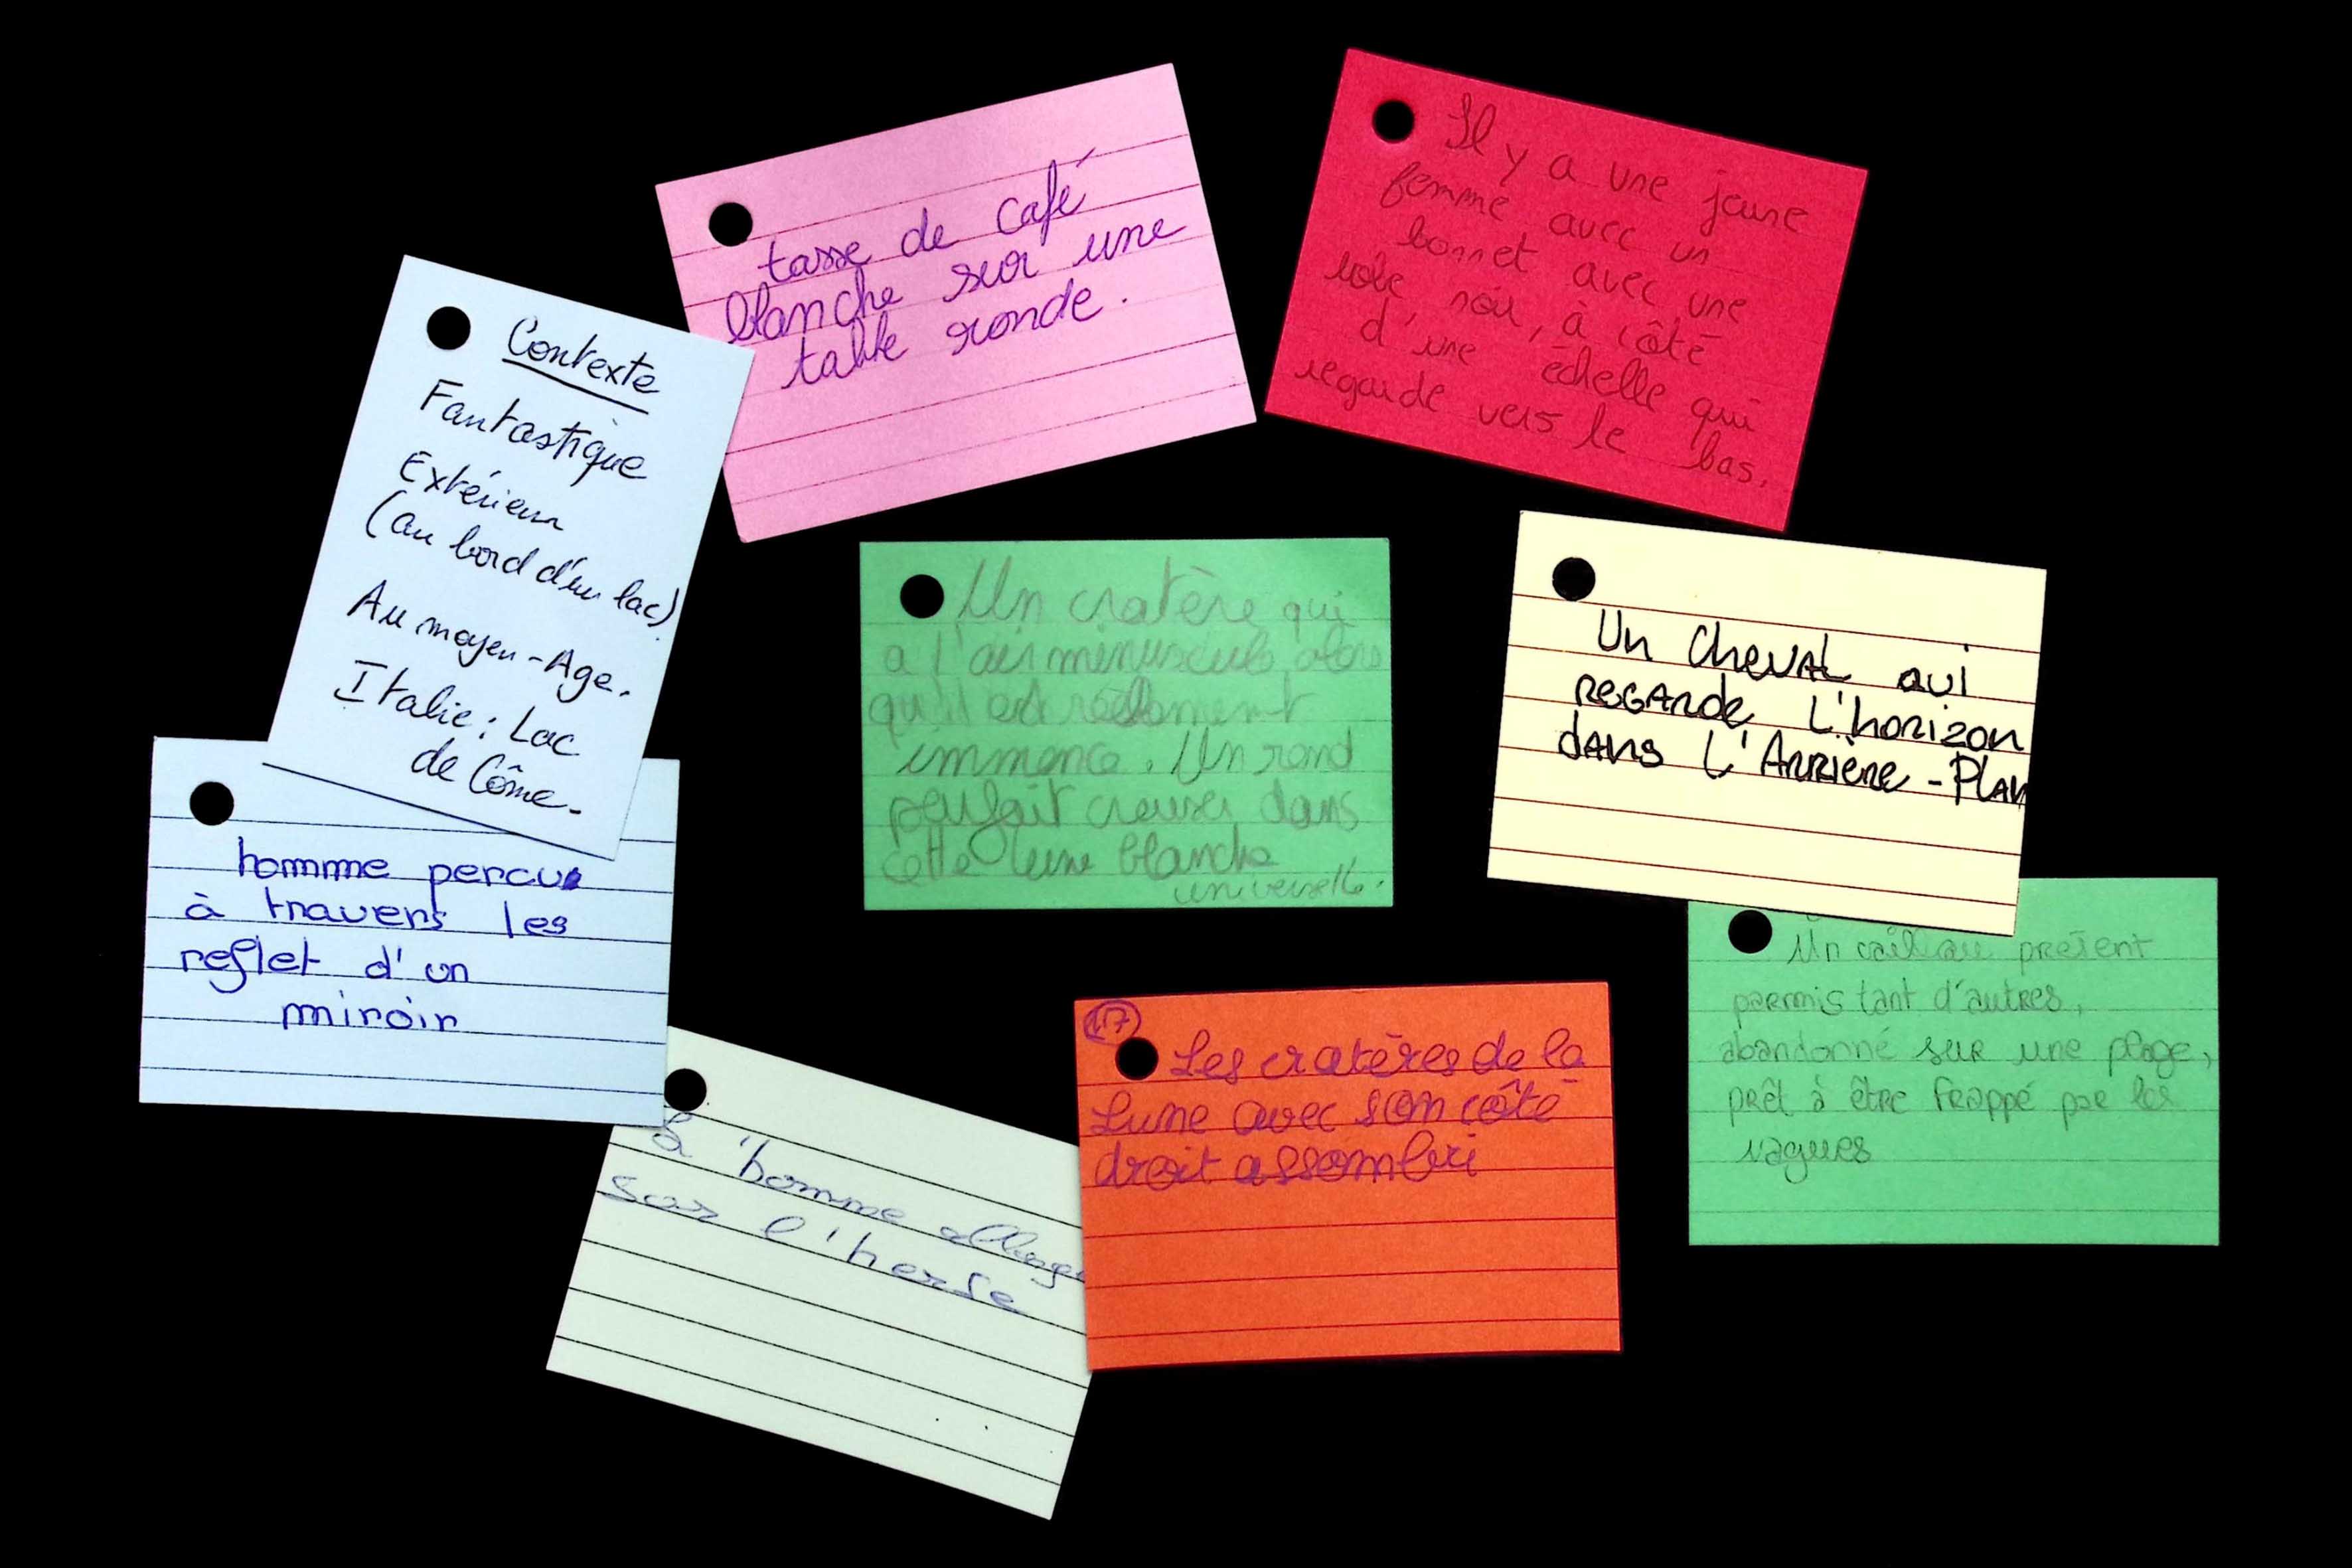 tasse de café
blanche sur une
table ronde.
Il y a une jeune
femme avec un
bonnet avec une
robe noir, à côté
d'une échelle qui
regarde vers le bas.
Contexte
Fantastique
Extérieur
(au bord d'un lac)
Au moyen-Age.
Italie : Lac
de Côme.
Un cratère qui
a l'air minuscule alors
qu'il est réellement
immence. Un rond
parfait creuser dans
cette lune blanche
universelle.
Un Cheval qui
regarde L'horizon
dans L'Arrière-Plan
homme percus
à travers les
reflet d'un
miroir
Un caillau présent
parmis tant d'autres,
abandonné sur une plage,
prêt à être frappé par les
vagues
17
Les cratères de la
Lune avec son côté
droit assombri
L'homme allongé
sur l'herbe